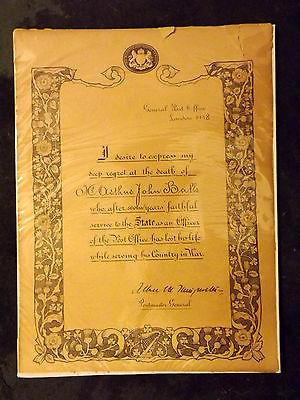 General Post Office
London 1918
I desire to express my
deep regret at the death of
Arthur John Balls
who, after seven years' faithful
service to the State as an Officer
of the Post Office, has lost his life
while serving his Country in War.
Postmaster General